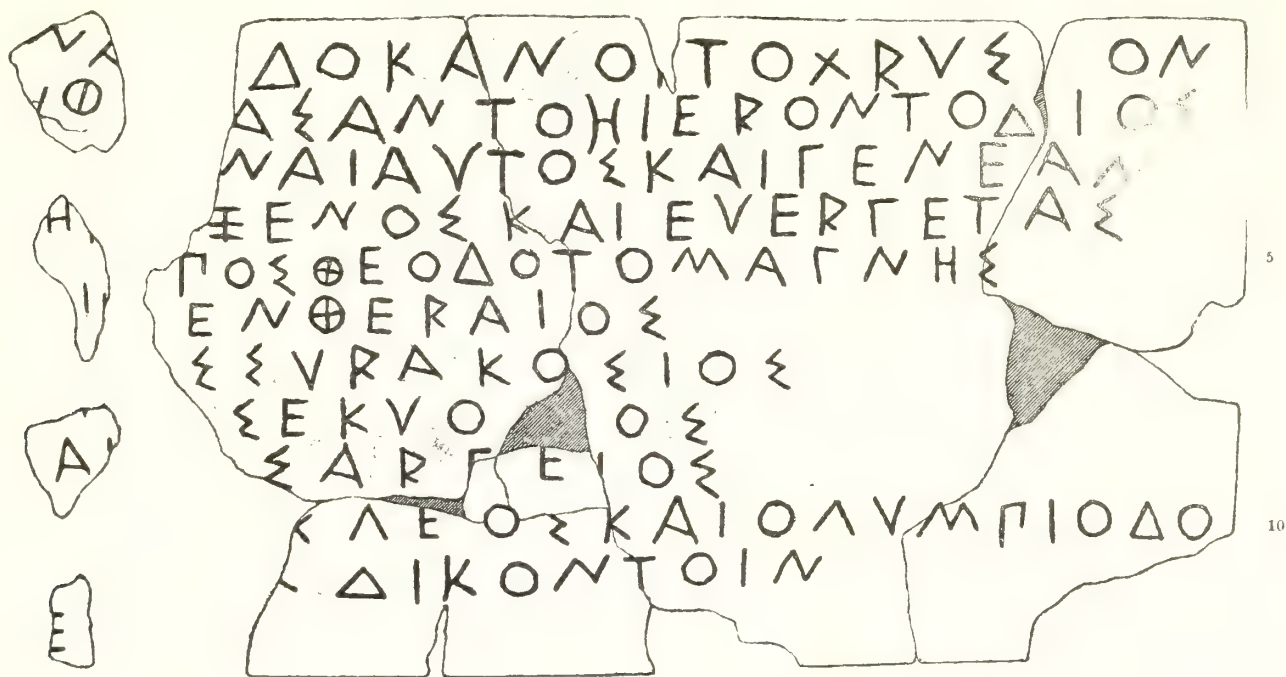 ΔΟΚΑΝΟΙΤΟΧRVΣ ΟΝ
ΑΣΑΝΤΟΗΙΕRΟΝΤΟΔΙΟΣ
ΝΑΙΑVΤΟΣΚΑΙΓΕΝΕΑΝ
ΞΕΝΟΣΚΑΙΕVΕRΓΕΤΑΣ
ΠΟΣΘΕΟΔΟΤΟΜΑΓΝΗΣ
5
ΕΝΘΕRΑΙΟΣ
ΣΣVRΑΚΟΣΙΟΣ
ΣΕΚVΟ ΟΣ
ΣΑRΓΕΙΟΣ
ΚΛΕΟΣΚΑΙΟΛVΜΠΙΟΔΟ
10
ΔΙΚΟΝΤΟΙΝ
Θ
Η
Ι
Α
Ε